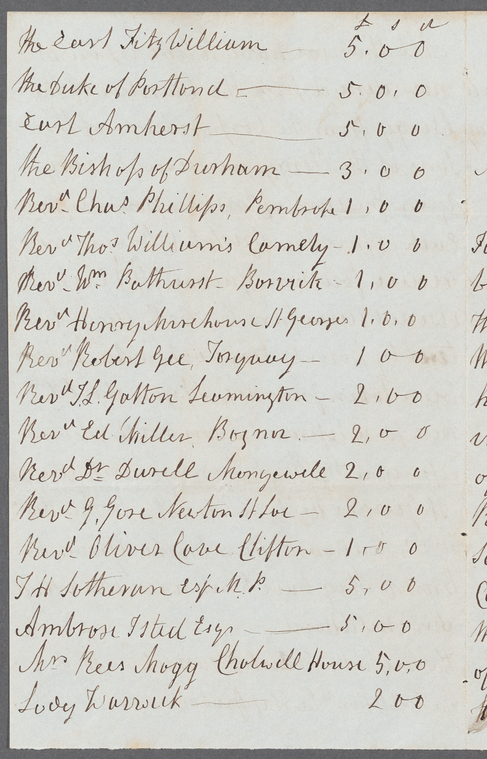 £ s d
The Earl FitzWilliam 5.0 0
The Duke of Portland 5.0.0
Earl Amherst 5.0 0
The Bishop of Durham 3.0 0
Revd Chas Phillips, Pembroke 1.0 0
Revd Thos Williams Camely 1.0 0
Revd Wm Bathurst Barwick 1.0 0
Revd Henry Morehouse St Georges 1.0.0
Revd Robert Gee, Torquay 1 0 0
Revd T.L. Galton Leamington 2.0 0
Revd Ed Miller Bognor 2.0 0
Revd Dr Durell Mongewell 2.0 0
Revd G. Gore Newton St Loe 2.0 0
Revd Oliver Cave Clifton 1.0 0
T H Sotheran Esq M.P. 5.0 0
Ambrose Isted Esqr 5.0 0
Mrs Rees Mogg Cholwell House 5.0.0
Lady Warwick 2 0 0